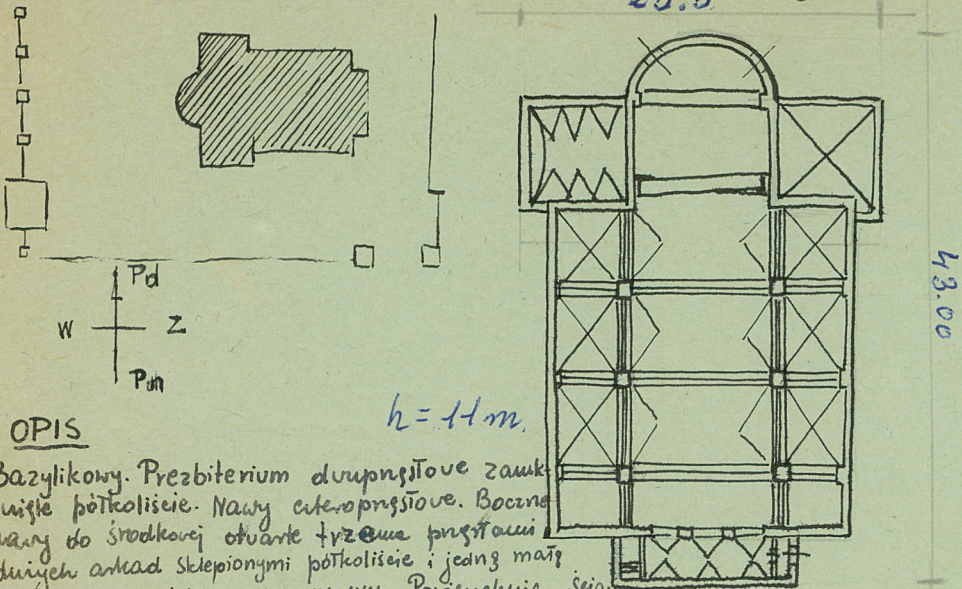 43.00
Pd
W Z
Pn
h = 11 m.
OPIS
Bazylikowy. Prezbiterium dwuprzęsłowe zamk-
nięte półkoliście. Nawy cztero­przęsłowe. Boczne
nawy do środkowej otwarte trzema przęsłami
dużych arkad sklepionymi półkoliście i jedną małą